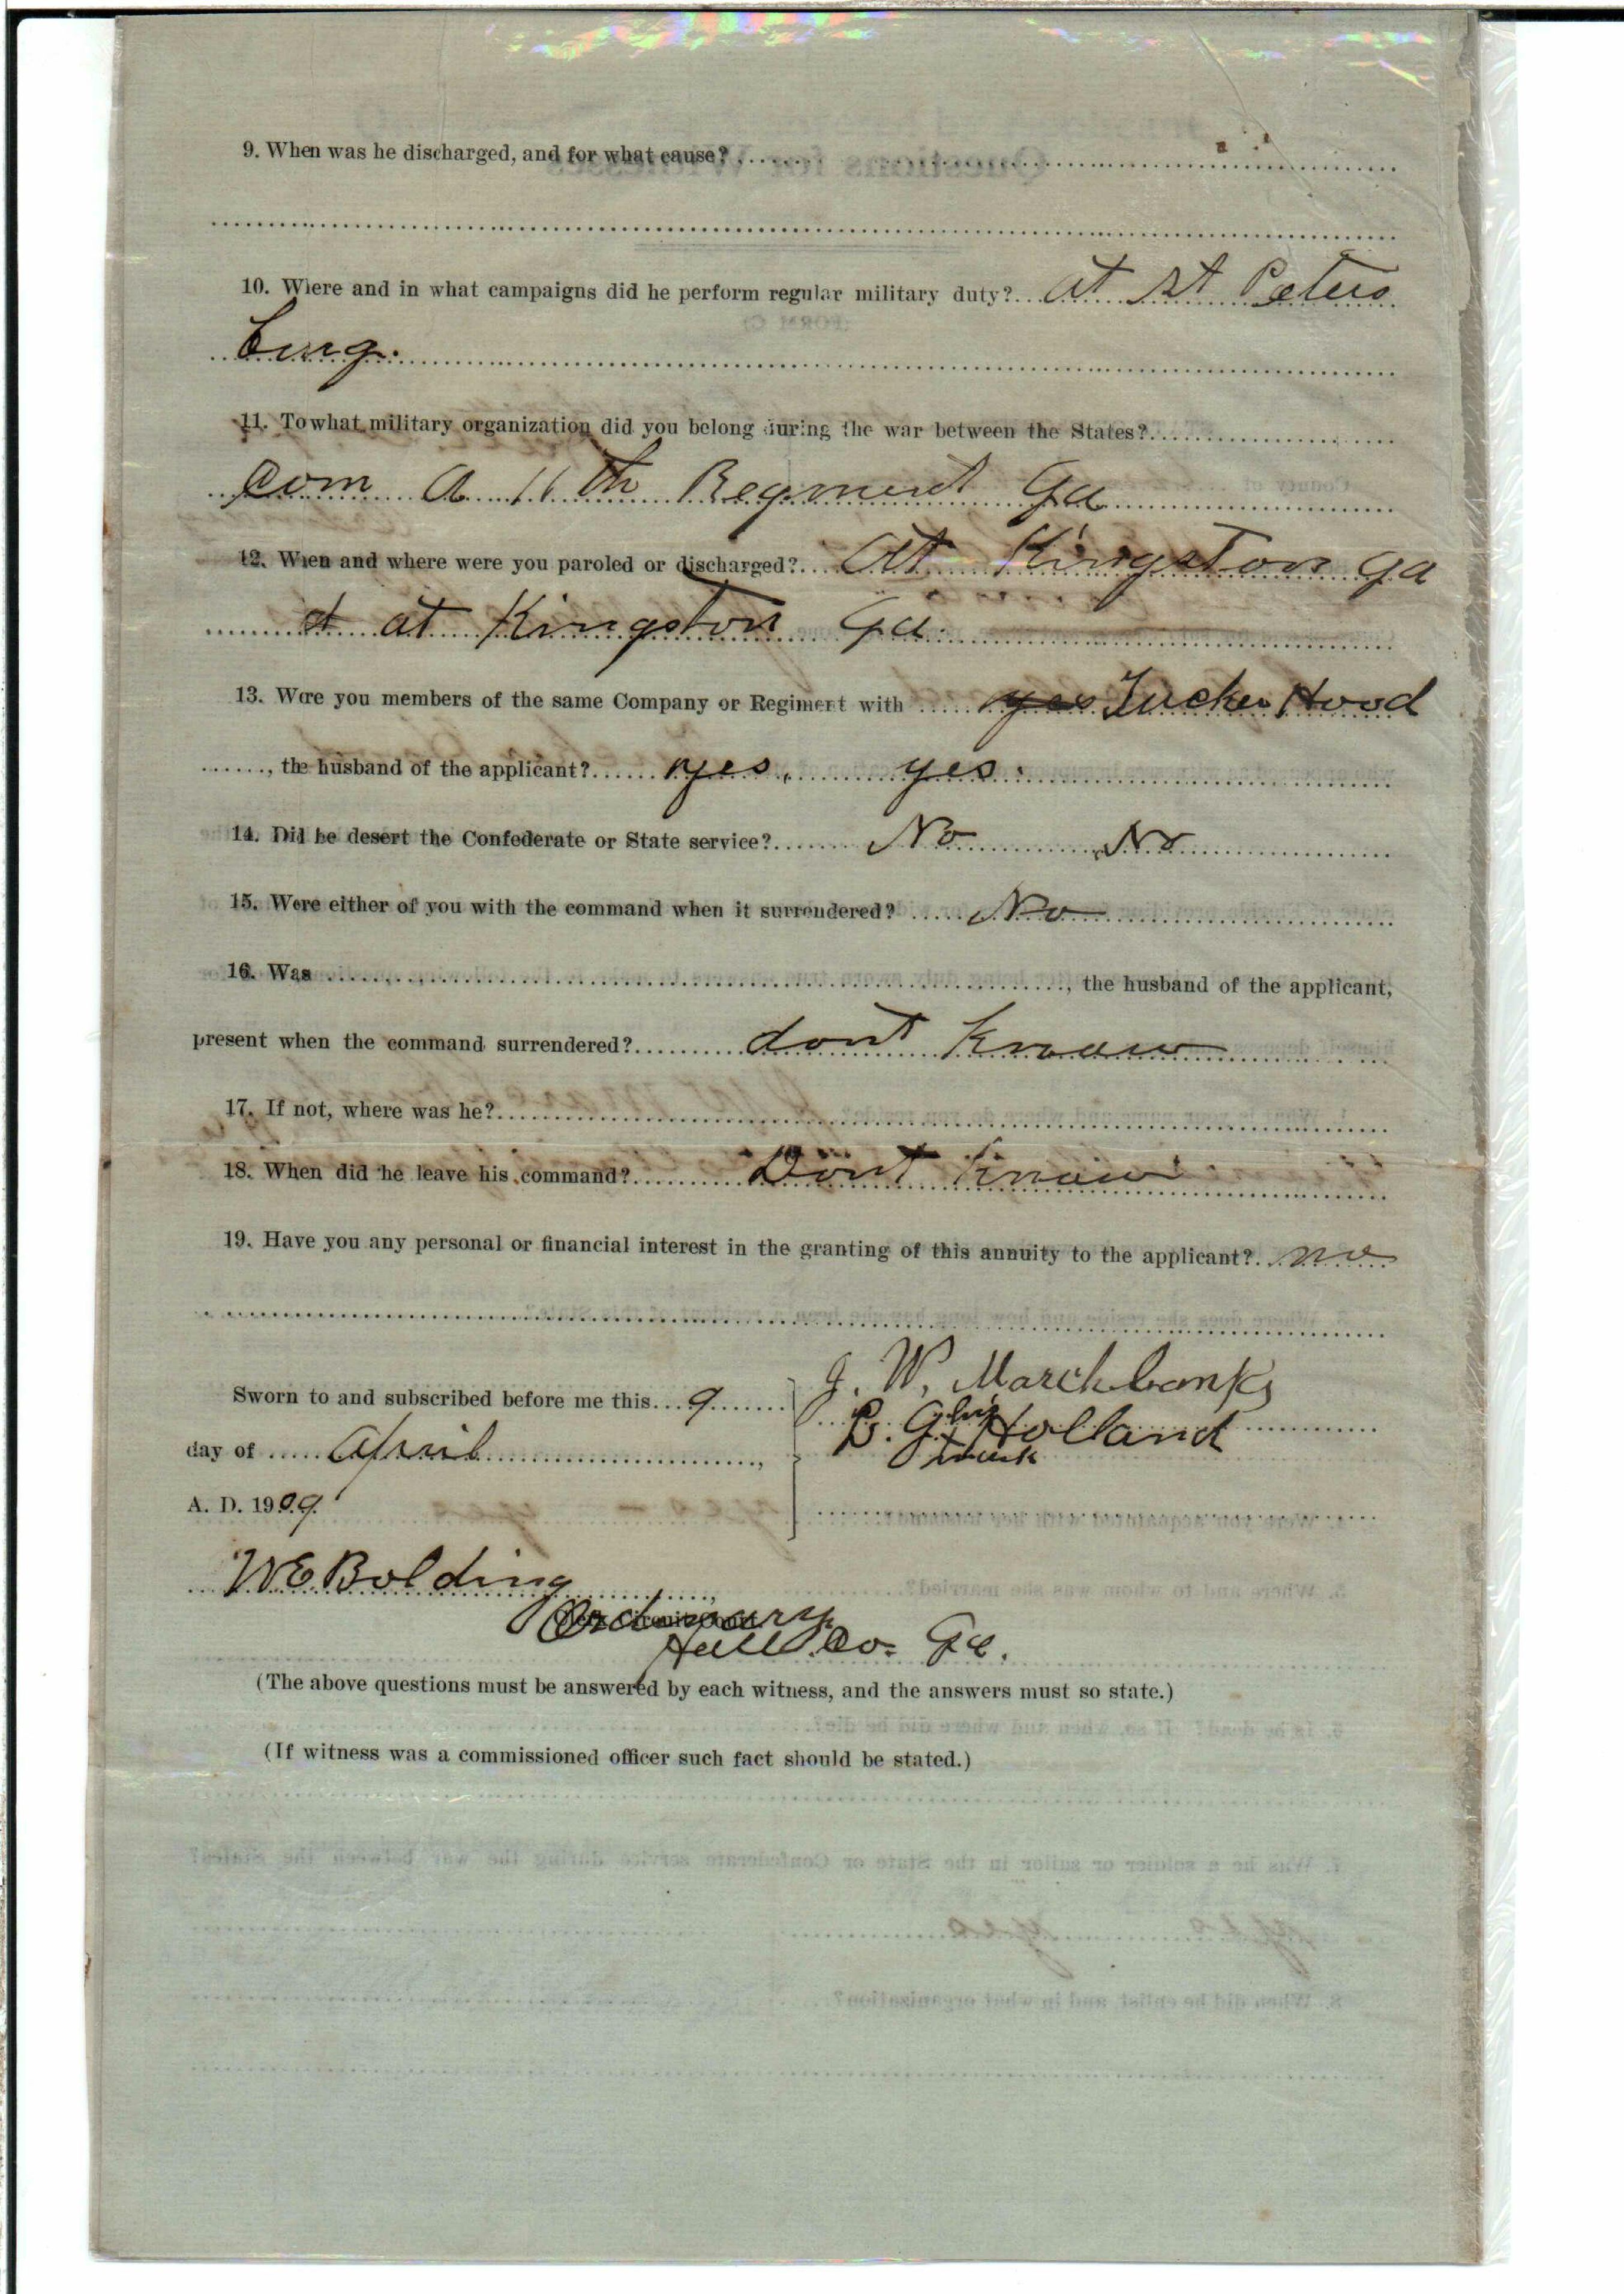 9. When was he discharged, and for what cause?
10. Where and in what campaigns did he perform regular military duty? at St Peters
burg.
11. To what military organization did you belong during the war between the States?
Com A 11th Regment Ga
12. When and where were you paroled or discharged? At Kingston Ga
at Kingston Ga.
13. Were you members of the same Company or Regiment with yes Tucker Hood
, the husband of the applicant? yes. yes.
14. Did he desert the Confederate or State service? No No
15. Were either of you with the command when it surrendered? No
16. Was , the husband of the applicant,
present when the command surrendered? dont know
17. If not, where was he?
18. When did he leave his command? Dont know
19. Have you any personal or financial interest in the granting of this annuity to the applicant? no
Sworn to and subscribed before me this 9
day of April,
A. D. 1909
J. W. Marchbanks
B. G. his Holland
mark
W E Bolding,
Ordinary
Hall Co. Ga.
(The above questions must be answered by each witness, and the answers must so state.)
(If witness was a commissioned officer such fact should be stated.)